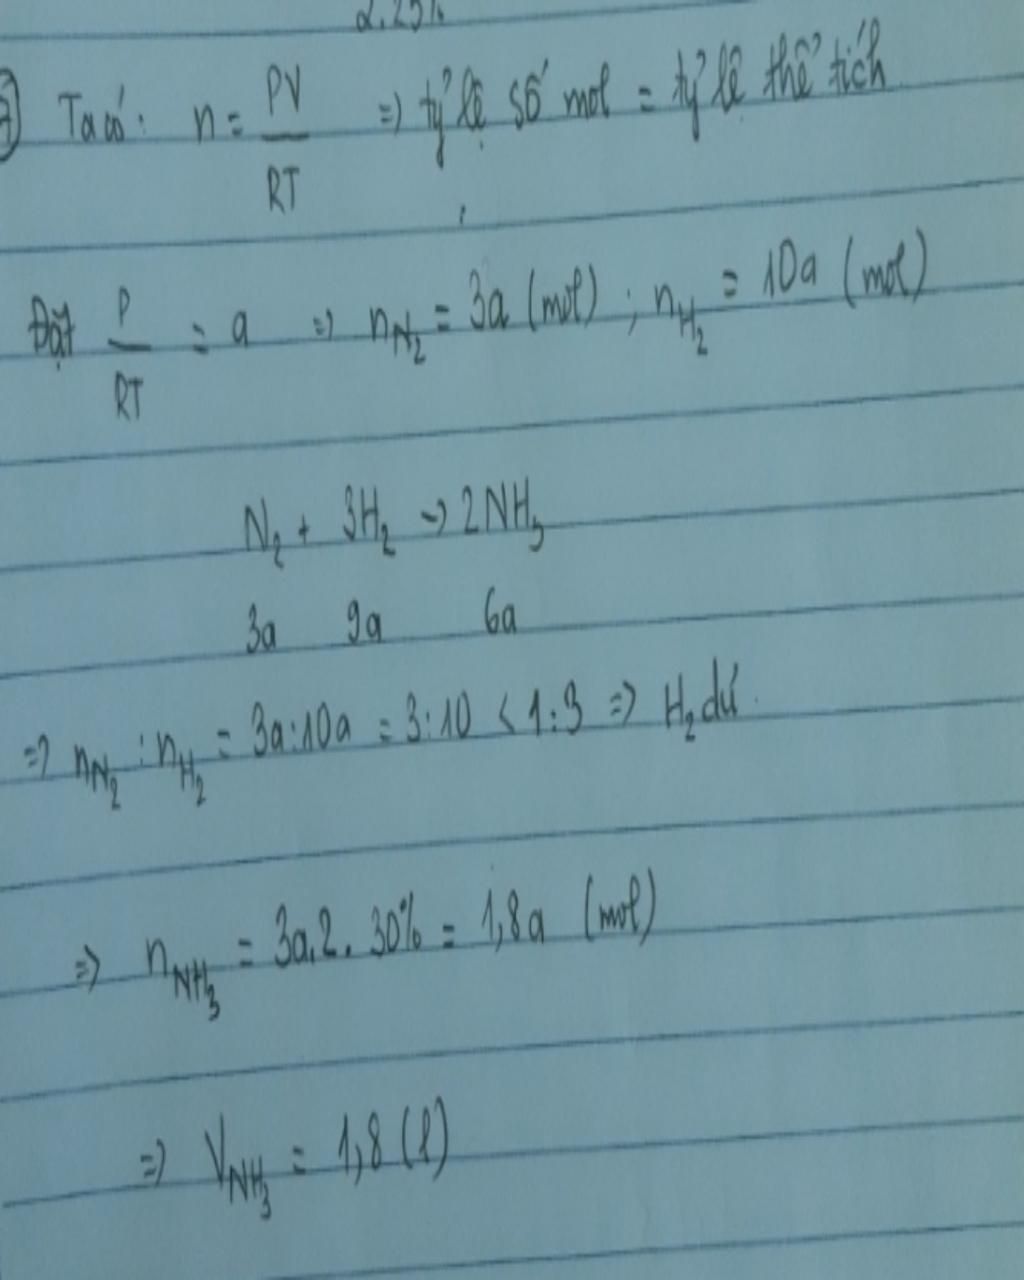 2.25%
Ta có: n = PV/RT => tỷ lệ số mol = tỷ lệ thể tích
Đặt P/RT = a => nN₂ = 3a (mol) ; nH₂ = 10a (mol)
N₂ + 3H₂ -> 2NH₃
3a 9a 6a
=> nN₂ : nH₂ = 3a:10a = 3:10 < 1:3 => H₂ dư
=> nNH₃ = 3a.2.30% = 1,8a (mol)
=> VNH₃ = 1,8 (l)